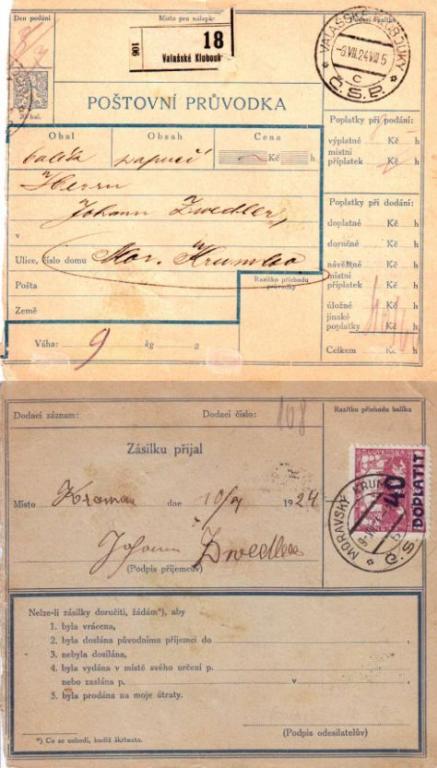 Den podání
Místo pro nálepk
8/7
106
18
Valašské Klobouk
VALAŠSKÉ KLOBOUKY
-9.VII.24.VII 5
C
Č.S.P.
POŠTOVNÍ PRŮVODKA
Poplatky při podání:
výplatné Kč h
místní
příplatek Kč h
Obal
Obsah
Cena
Kč h
Herrn
Johann Zwedler
v
Ulice, číslo domu Mor. Krumlov
Pošta
Země
Razítko příchodu
průvodky
Poplatky při dodání:
doplatné Kč h
doručné Kč h
návěštné Kč h
místní
příplatek Kč h
úložné Kč h
jinské
poplatky Kč h
Celkem Kč h
Váha: 9 kg g
Dodací záznam:
Dodací číslo: 108
Razítko příchodu balíku
Zásilku přijal
Místo dne 1924
Johann Zwedler
(Podpis příjemcův)
40
DOPLATIT
MORAVSKÝ KRUM
Č.S.
Nelze-li zásilky doručiti, žádám*), aby
1. byla vrácena,
2. byla doslána původnímu příjemci do
3. nebyla dosílána,
4. byla vydána v místě svého určení p.
nebo zaslána p. v
5. byla prodána na moje útraty.
*) Co se nehodí, budiž škrtnuto.
(Podpis odesilatelův)